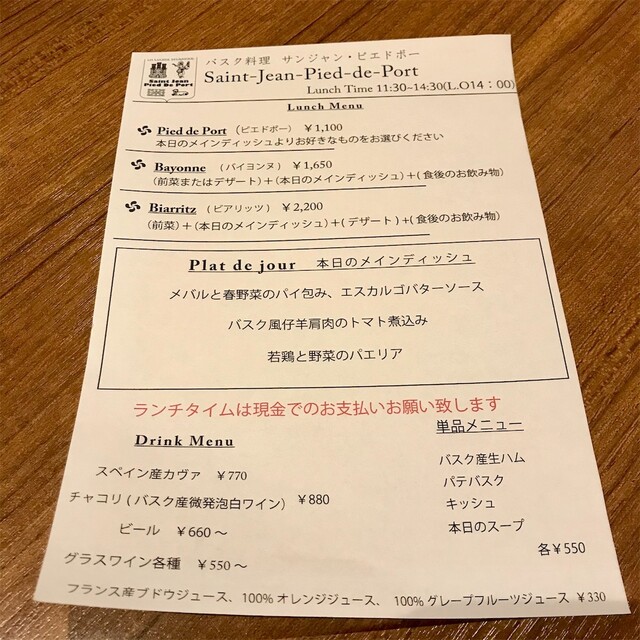 バスク料理 サンジャン・ピエドポー
Saint Jean
Pied De Port
Saint-Jean-Pied-de-Port
Lunch Time 11:30~14:30(L.O14：00)
Lunch Menu
Pied de Port （ピエドポー） ￥1,100
本日のメインディッシュよりお好きなものをお選びください
Bayonne （バイヨンヌ） ￥1,650
（前菜またはデザート）＋（本日のメインディッシュ）＋（食後のお飲み物）
Biarritz （ビアリッツ） ￥2,200
（前菜）＋（本日のメインディッシュ）＋（デザート）＋（食後のお飲み物）
Plat de jour 本日のメインディッシュ
メバルと春野菜のパイ包み、エスカルゴバターソース
バスク風仔羊肩肉のトマト煮込み
若鶏と野菜のパエリア
ランチタイムは現金でのお支払いお願い致します
Drink Menu
スペイン産カヴァ ￥770
チャコリ（バスク産微発泡白ワイン） ￥880
ビール ￥660～
グラスワイン各種 ￥550～
単品メニュー
バスク産生ハム
パテバスク
キッシュ
本日のスープ
各¥550
フランス産ブドウジュース、100% オレンジジュース、 100% グレープフルーツジュース ￥330